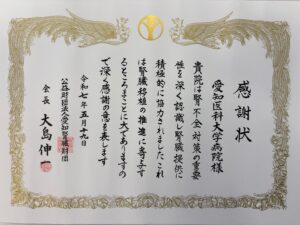 感謝状
愛知医科大学病院様
貴院は腎不全対策の重要
性を深く認識し腎臓提供に
積極的に協力されましたこれ
は腎臓移植の推進に寄与す
るところまことに大でありますの
で深く感謝の意を表します
令和七年五月十九日
公益財団法人愛知腎臓財団
会長 大島伸一